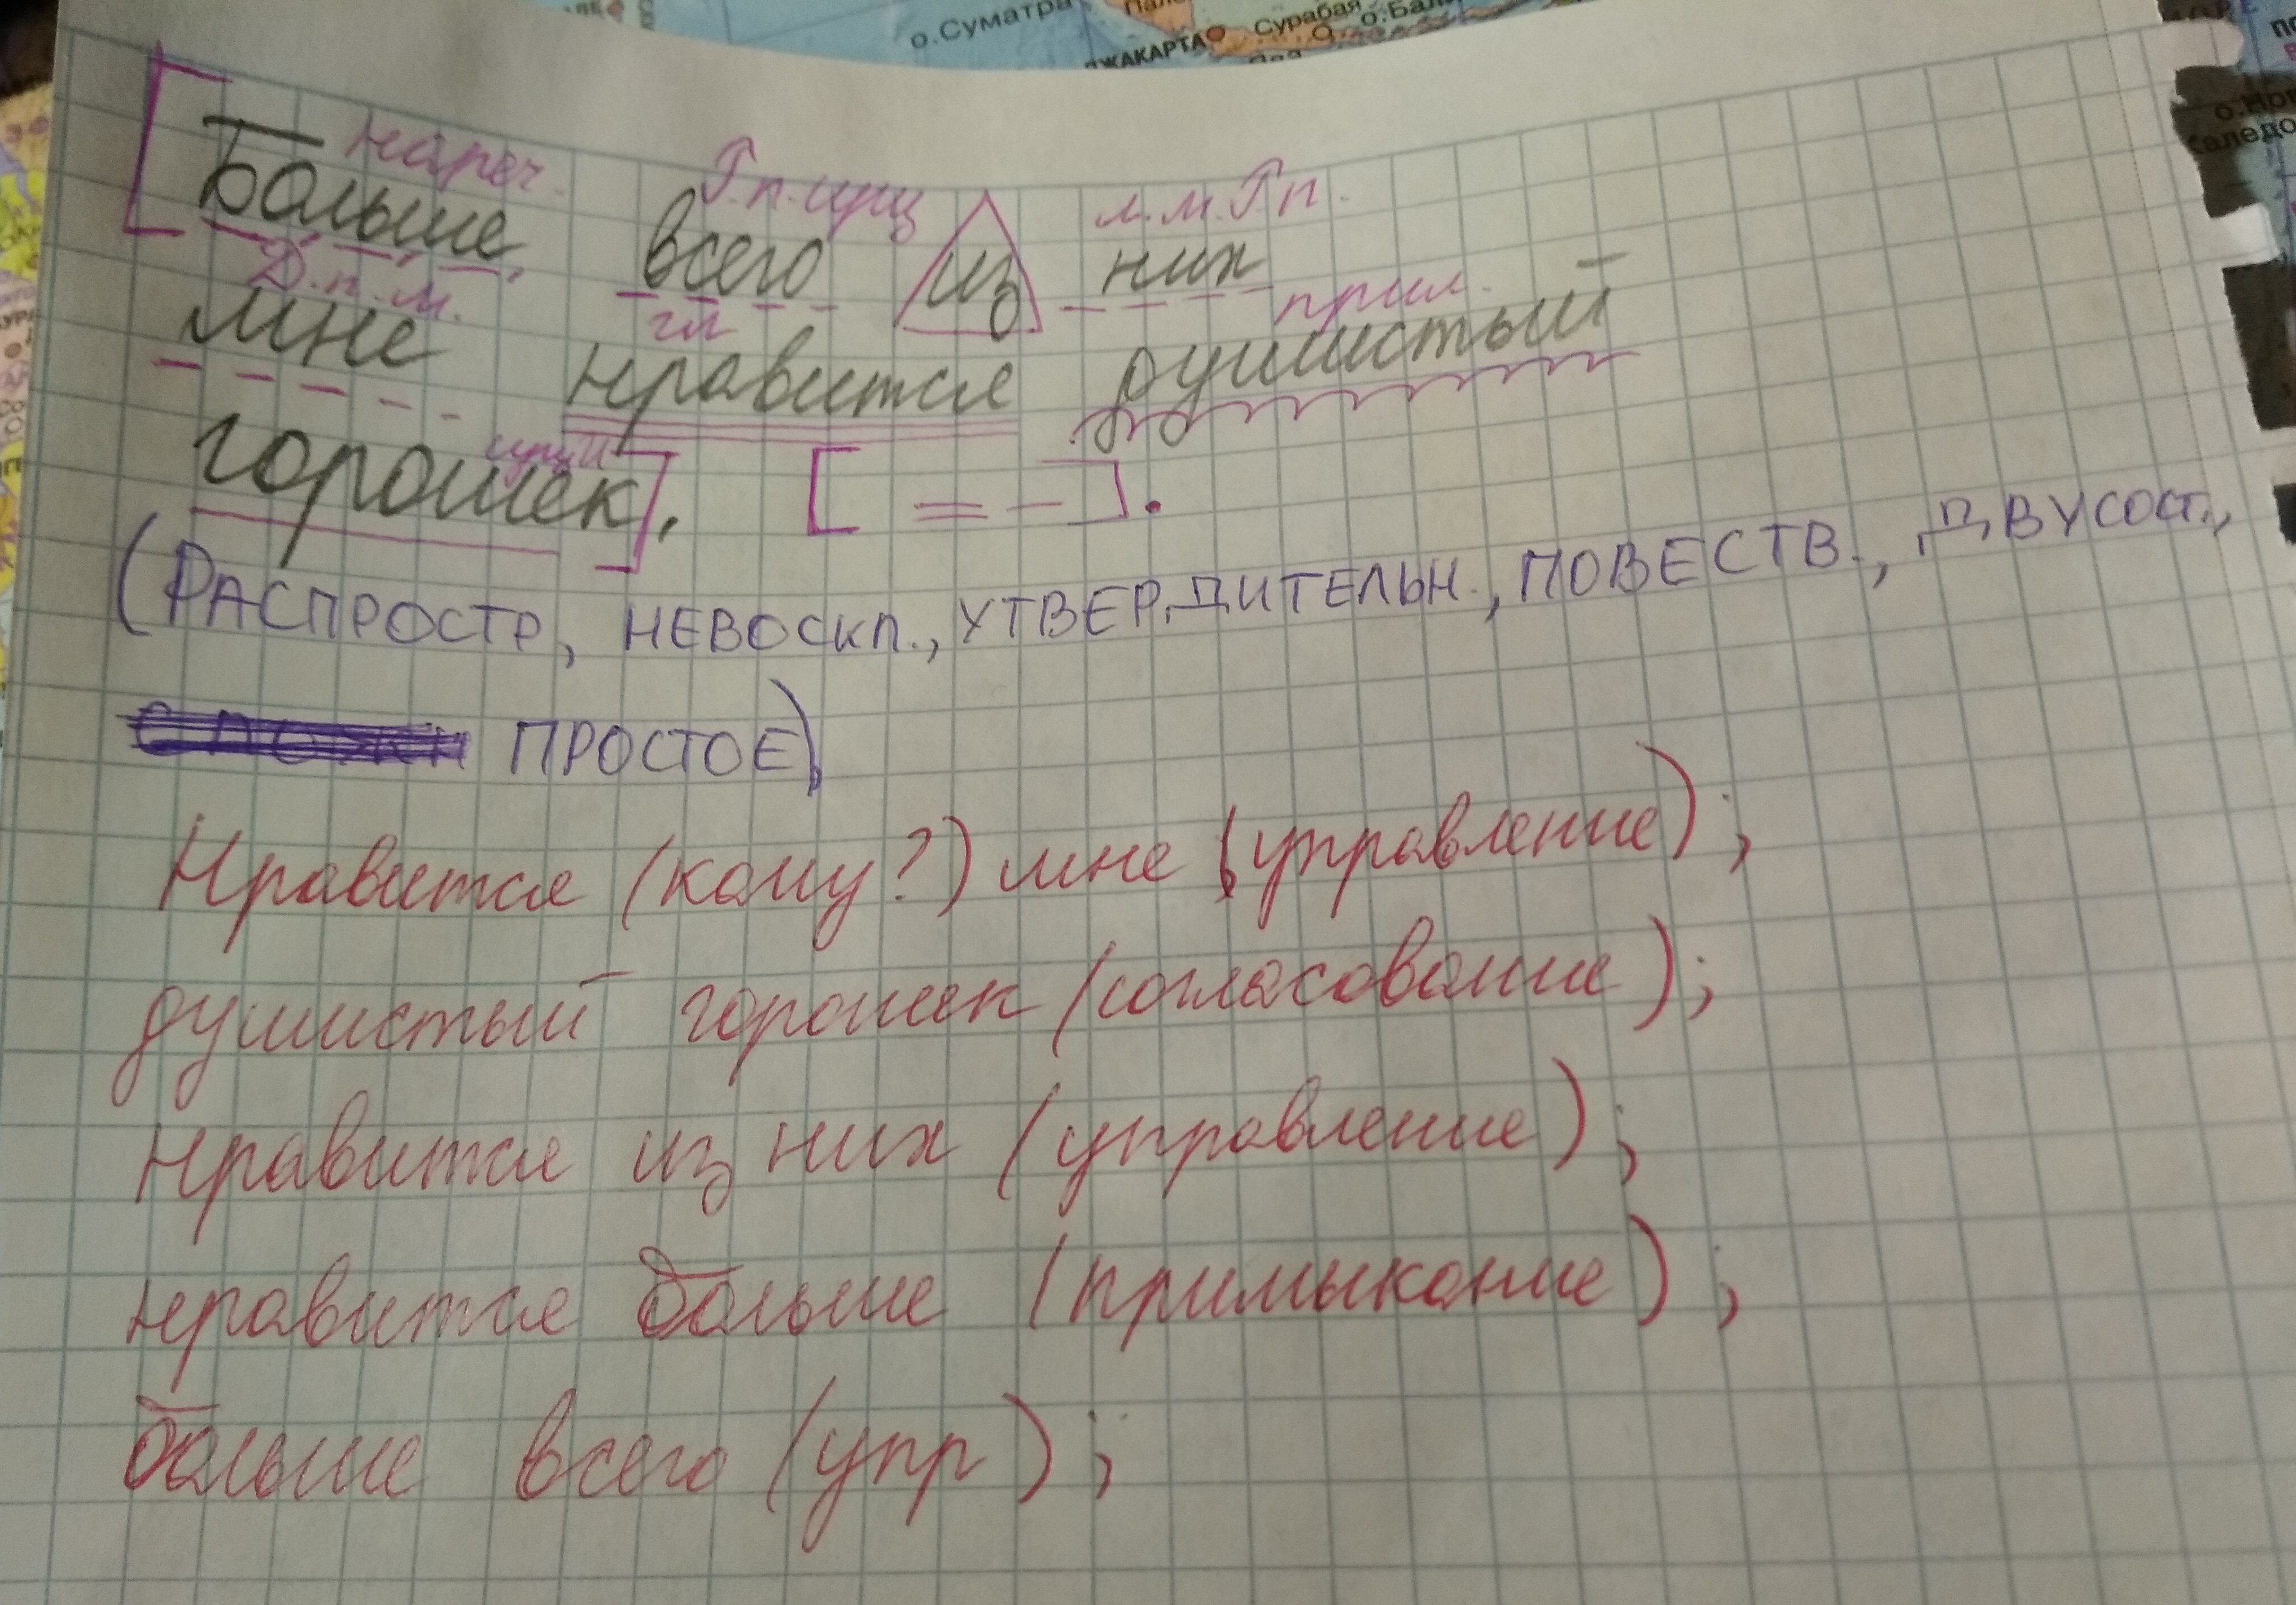 о.Суматра
Сурабая
о.Бали
ДЖАКАРТА
о.Нов
Каледо
нареч. Г.п. сущ л.м. Г.п.
[Больше всего из них
Д.п. м. гл прил.
мне нравится душистый
сущ И
горошек]. [ = – ].
(РАСПРОСТР, НЕВОСКЛ., УТВЕРДИТЕЛЬН., ПОВЕСТВ., ДВУСОСТ.,
ПРОСТОЕ)
Нравится (кому?) мне (управление);
душистый горошек (согласование);
нравится из них (управление);
нравится больше (примыкание);
больше всего (упр);